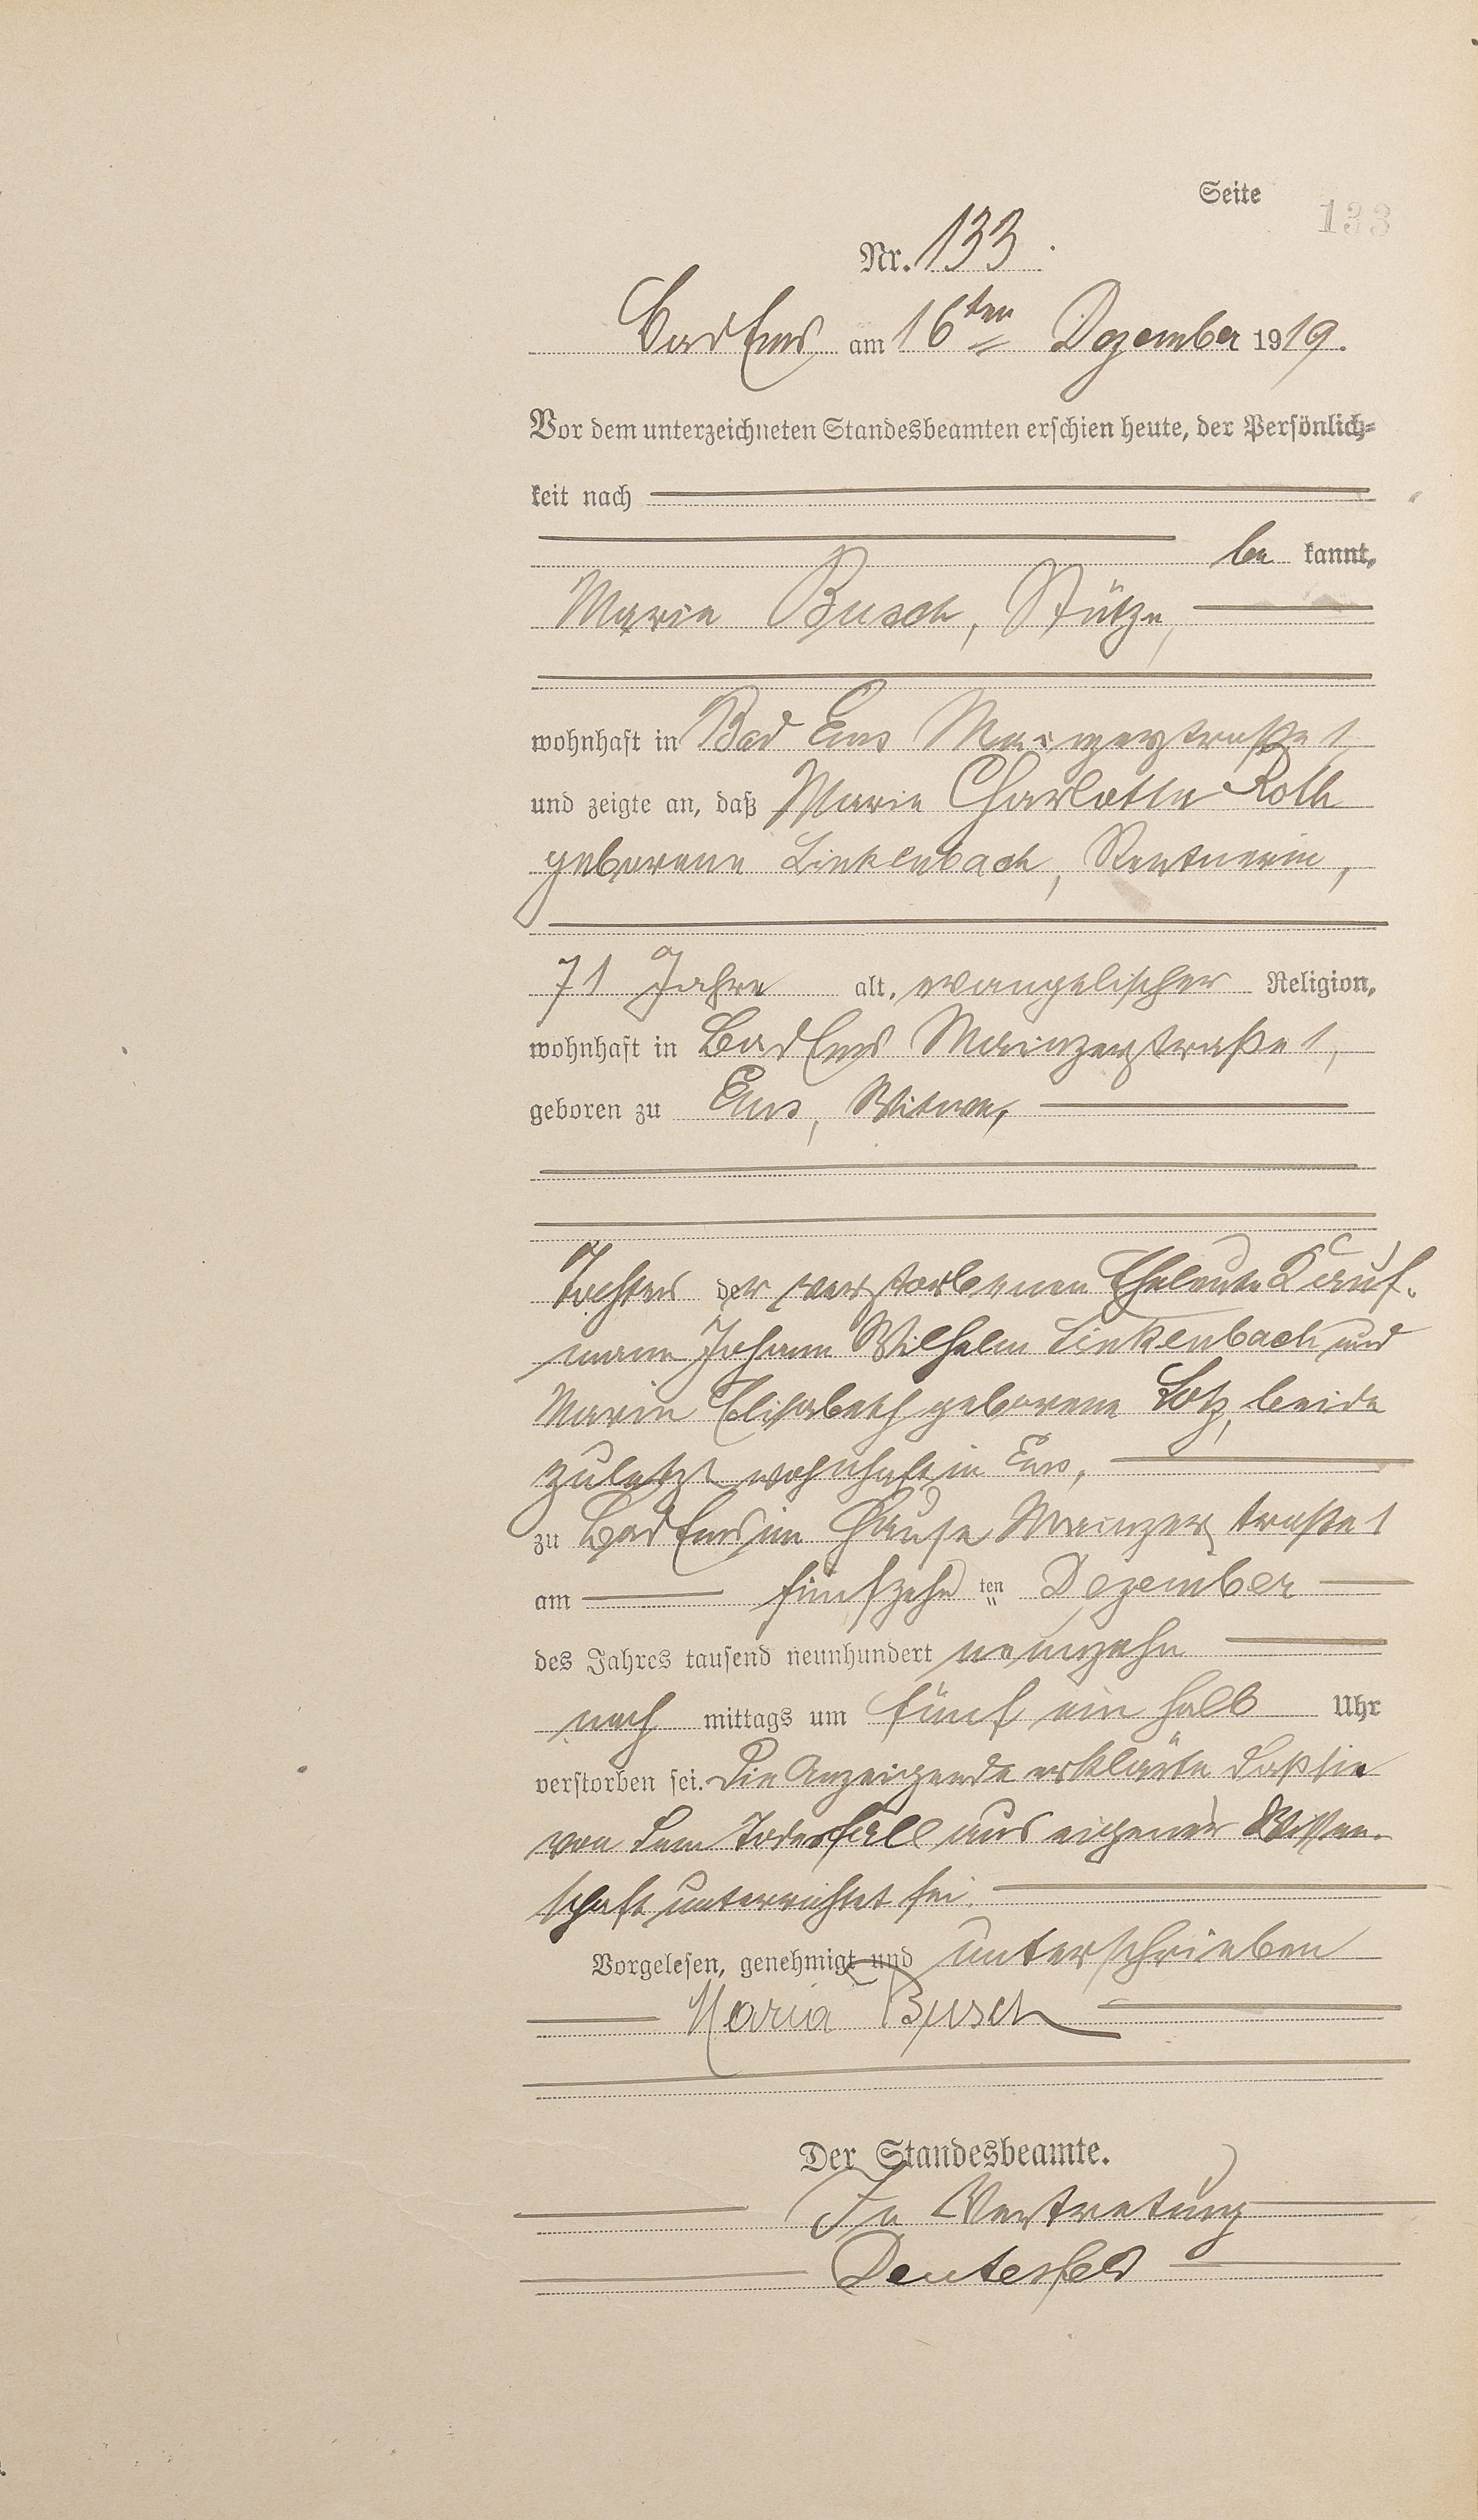 Seite 133
Nr. 133.
Bad Ems am 16ten Dezember 1919.
Vor dem unterzeichneten Standesbeamten erschien heute, der Persönlich-
keit nach
be kannt,
Marie Busch, Stütze,
wohnhaft in Bad Ems Mainzerstraße 1
und zeigte an, daß Marie Charlotte Roth
geborene Linkenbach, Rentnerin,
71 Jahre alt, evangelischer Religion,
wohnhaft in Bad Ems Mainzerstraße 1,
geboren zu Ems, Witwe,
Tochter der verstorbenen Eheleute Kauf-
mann Johann Wilhelm Linkenbach und
Marie Elisabeth geborene Lotz, beide
zuletzt wohnhaft in Ems,
zu Bad Ems im Hause Mainzerstraße 1
am fünfzehnten Dezember
des Jahres tausend neunhundert neunzehn
nach mittags um fünf ein halb Uhr
verstorben sei. Die Anzeigende erklärte daß sie
von dem Todesfall aus eigener Wissen-
schaft unterrichtet sei.
Vorgelesen, genehmigt und unterschrieben
Maria Busch
Der Standesbeamte.
In Vertretung
Deutesfeld